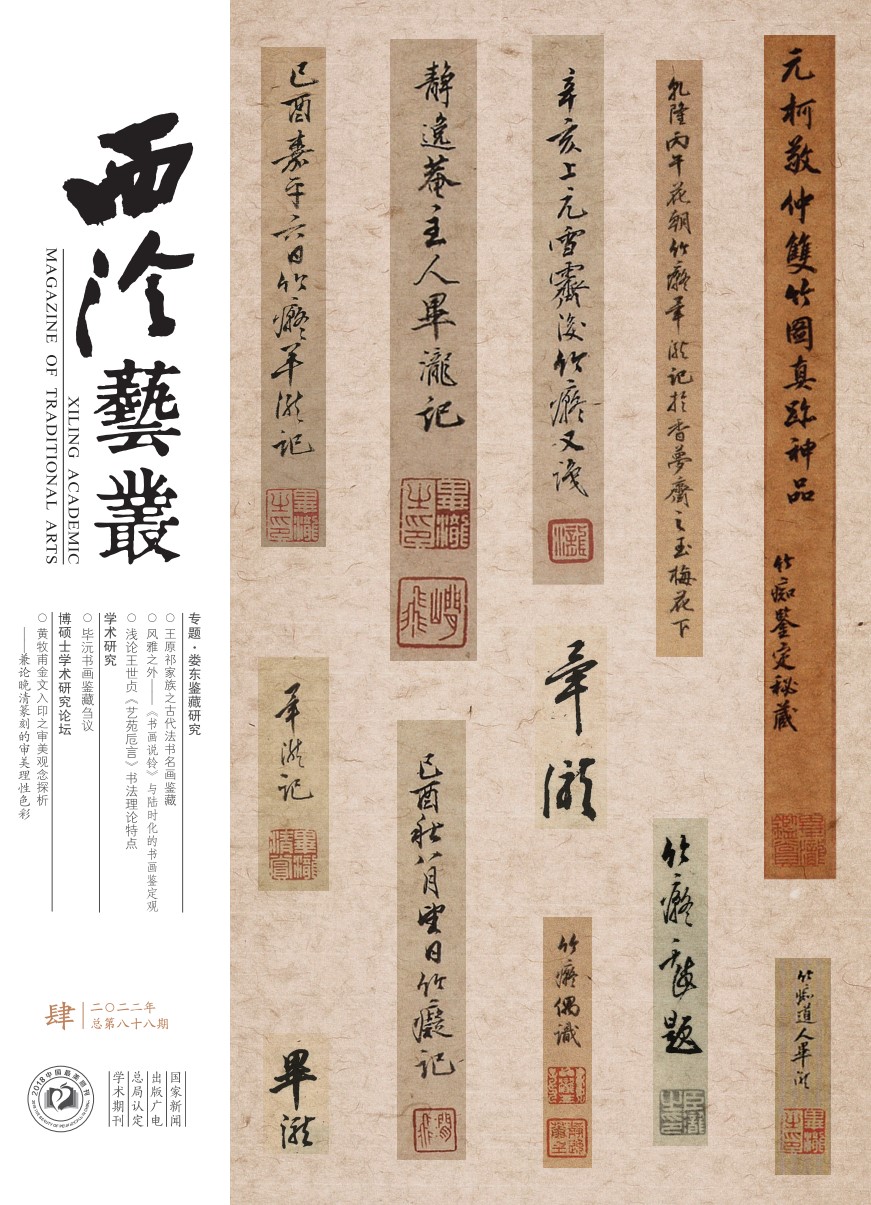 西泠
藝叢
MAGAZINE OF TRADITIONAL ARTS
XILING ACADEMIC
专题·娄东鉴藏研究
○ 王原祁家族之古代法书名画鉴藏
○ 风雅之外——《书画说铃》与陆时化的书画鉴定观
○ 浅论王世贞《艺苑卮言》书法理论特点
学术研究
○ 毕沅书画鉴藏刍议
博硕士学术研究论坛
○ 黄牧甫金文入印之审美观念探析
——兼论晚清篆刻的审美理性色彩
肆
二〇二二年
总第八十八期
国家新闻
出版广电
总局认定
学术期刊
2018中国最美期刊
元柯敬仲雙竹圖真跡神品
竹痴鑒定秘藏
乾隆丙午花朝竹癡畢瀧記於香夢齋之玉梅花下
辛亥上元雪霽後竹癡又識
靜逸菴主人畢瀧記
己酉嘉平六日竹癡畢瀧記
畢瀧
畢瀧記
己酉秋八月望日竹癡記
竹癡畢瀧題
竹癡偶識
竹痴道人畢瀧
畢瀧